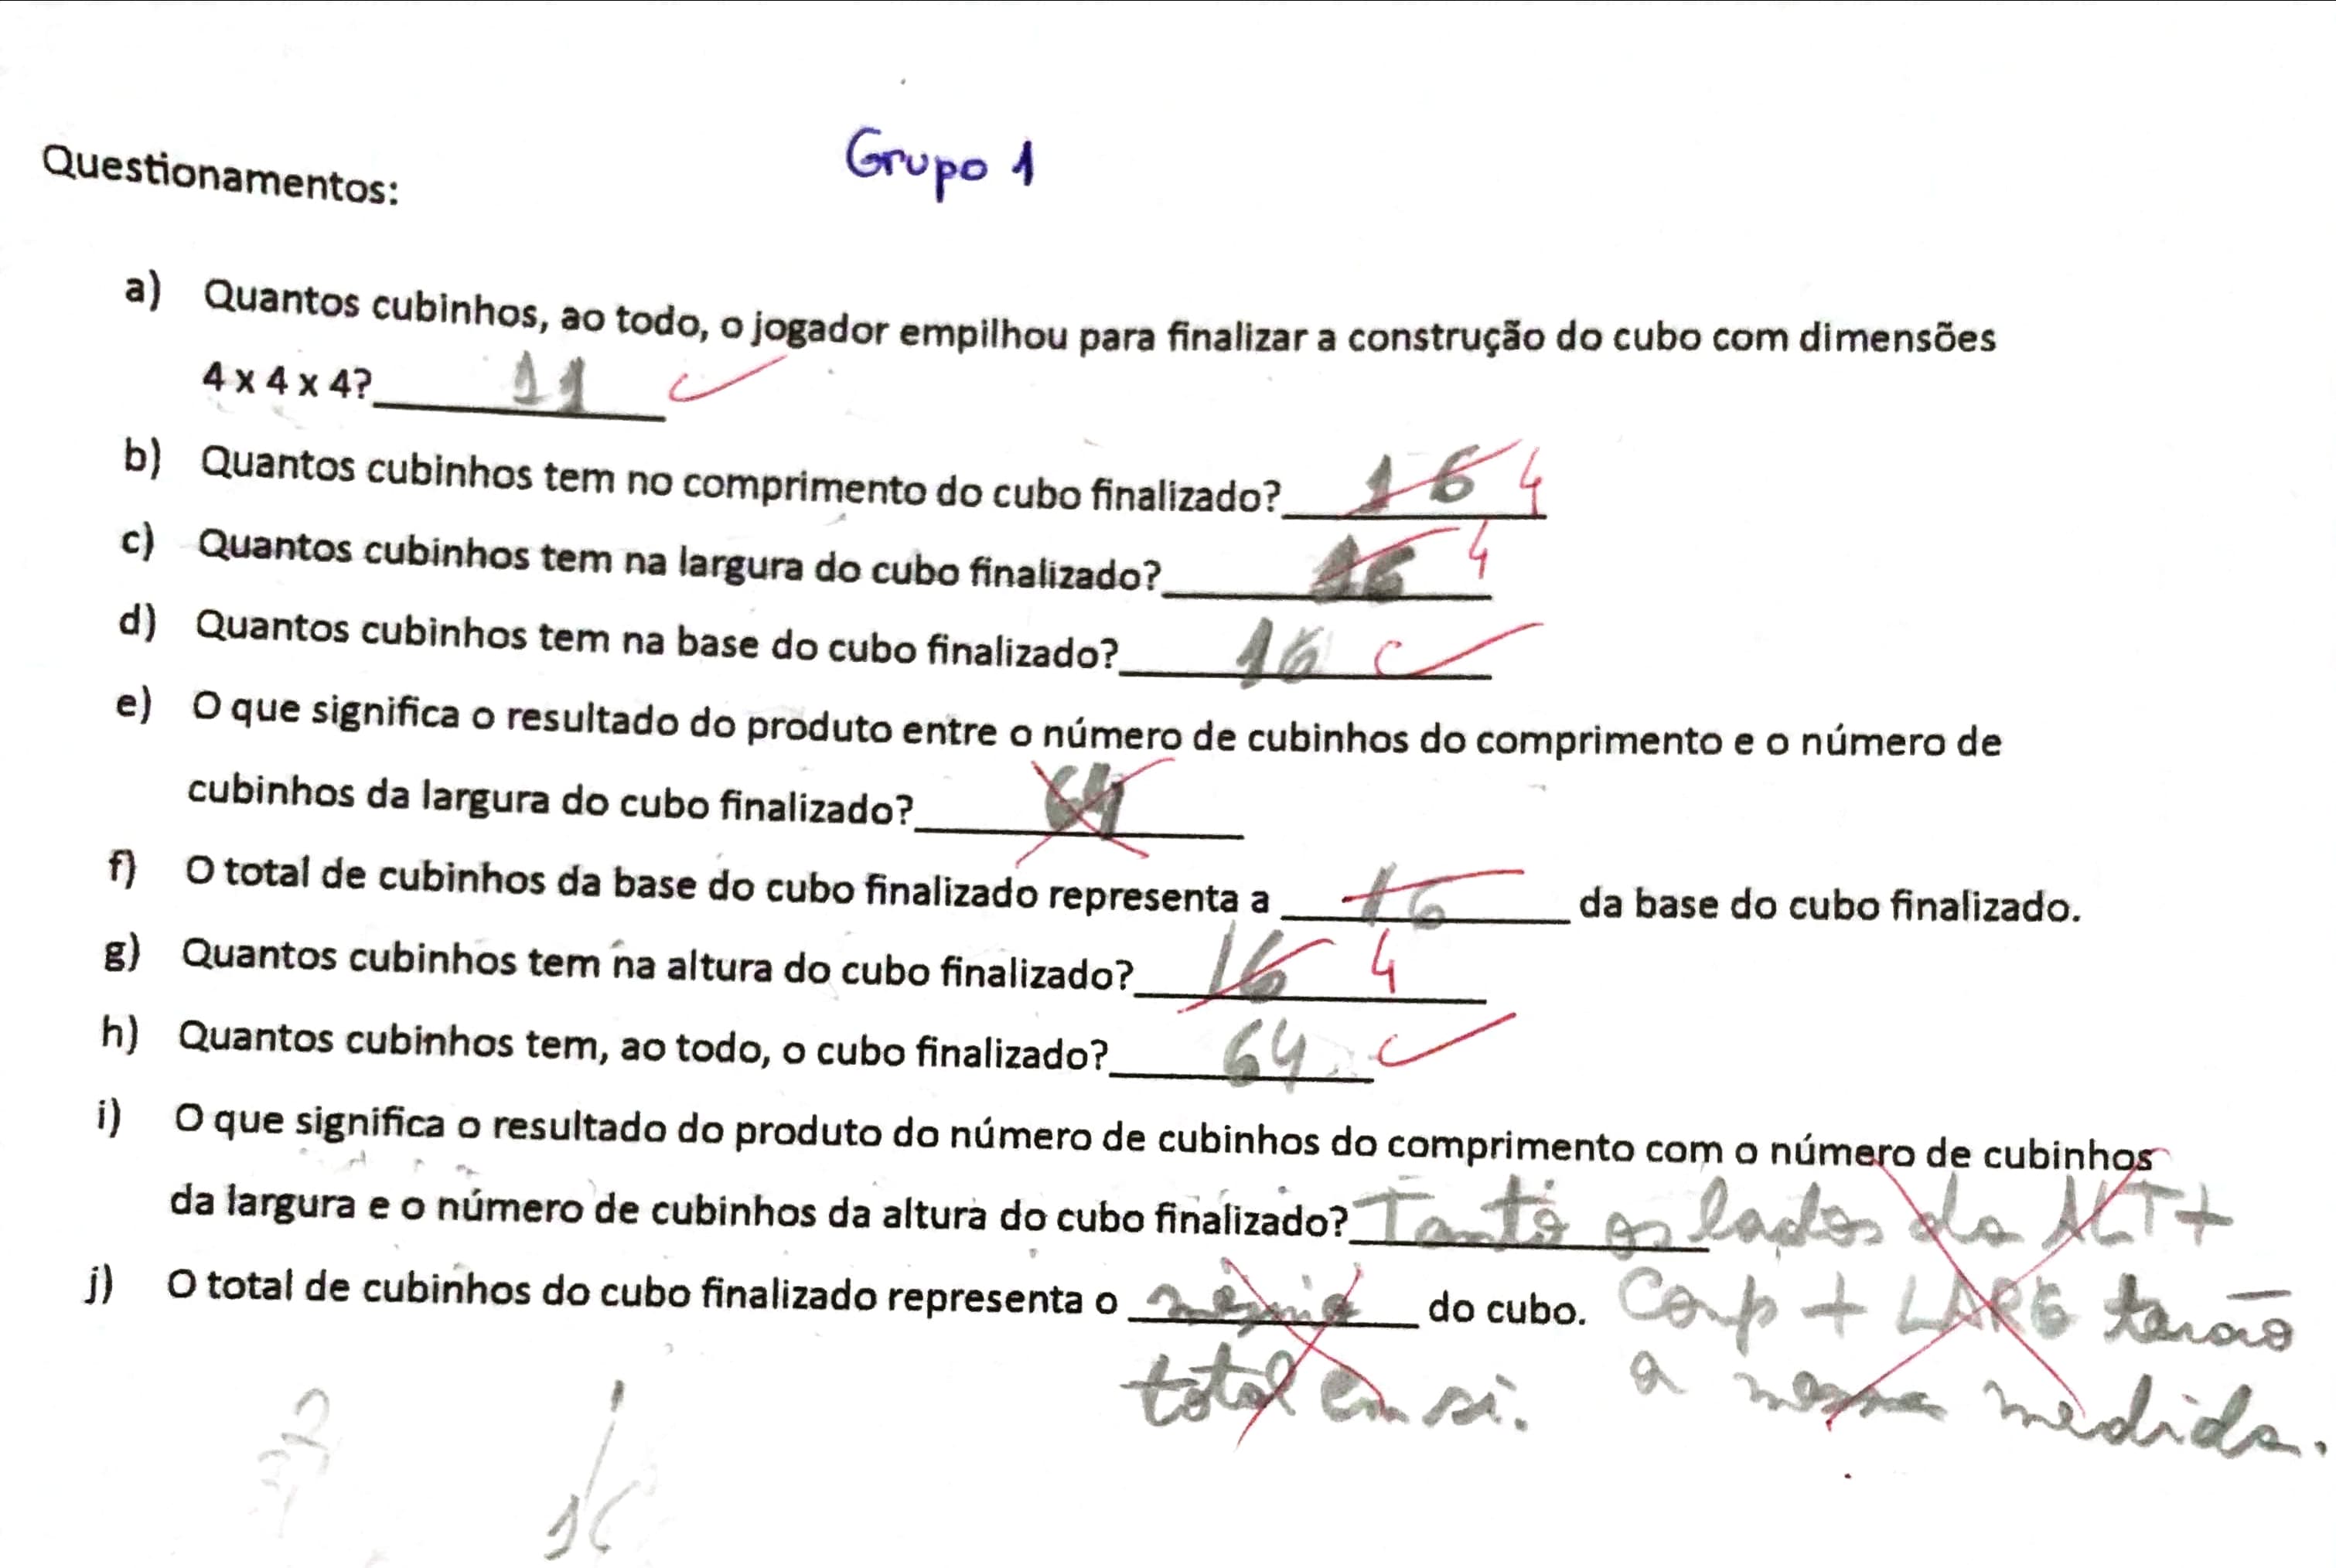 Grupo 1
Questionamentos:
a) Quantos cubinhos, ao todo, o jogador empilhou para finalizar a construção do cubo com dimensões
4 x 4 x 4? 11
b) Quantos cubinhos tem no comprimento do cubo finalizado? 16 4
c) Quantos cubinhos tem na largura do cubo finalizado? 16 4
d) Quantos cubinhos tem na base do cubo finalizado? 16
e) O que significa o resultado do produto entre o número de cubinhos do comprimento e o número de
cubinhos da largura do cubo finalizado? 64
f) O total de cubinhos da base do cubo finalizado representa a 16 da base do cubo finalizado.
g) Quantos cubinhos tem na altura do cubo finalizado? 16 4
h) Quantos cubinhos tem, ao todo, o cubo finalizado? 64
i) O que significa o resultado do produto do número de cubinhos do comprimento com o número de cubinhos
da largura e o número de cubinhos da altura do cubo finalizado? Tanto os lados da ALT +
Comp + LARG terão
a mesma medida.
j) O total de cubinhos do cubo finalizado representa o mesmo do cubo.
total em si.
16